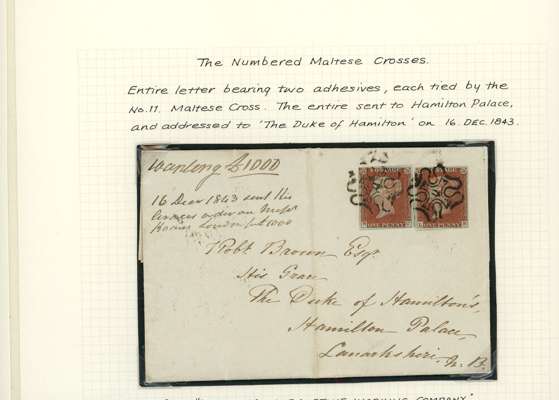 The Numbered Maltese Crosses.
Entire letter bearing two adhesives, each tied by the
No.11. Maltese Cross. The entire sent to Hamilton Palace,
and addressed to 'The Duke of Hamilton' on 16. DEC. 1843.
wanting £1000
16 Decr 1843 sent His
order on Messrs
London for £1000
Robt. Brown Esqr.
His Grace
The Duke of Hamilton's,
Hamilton Palace,
Lanarkshire. N.B.
ONE PENNY
ONE PENNY
COMPANY'